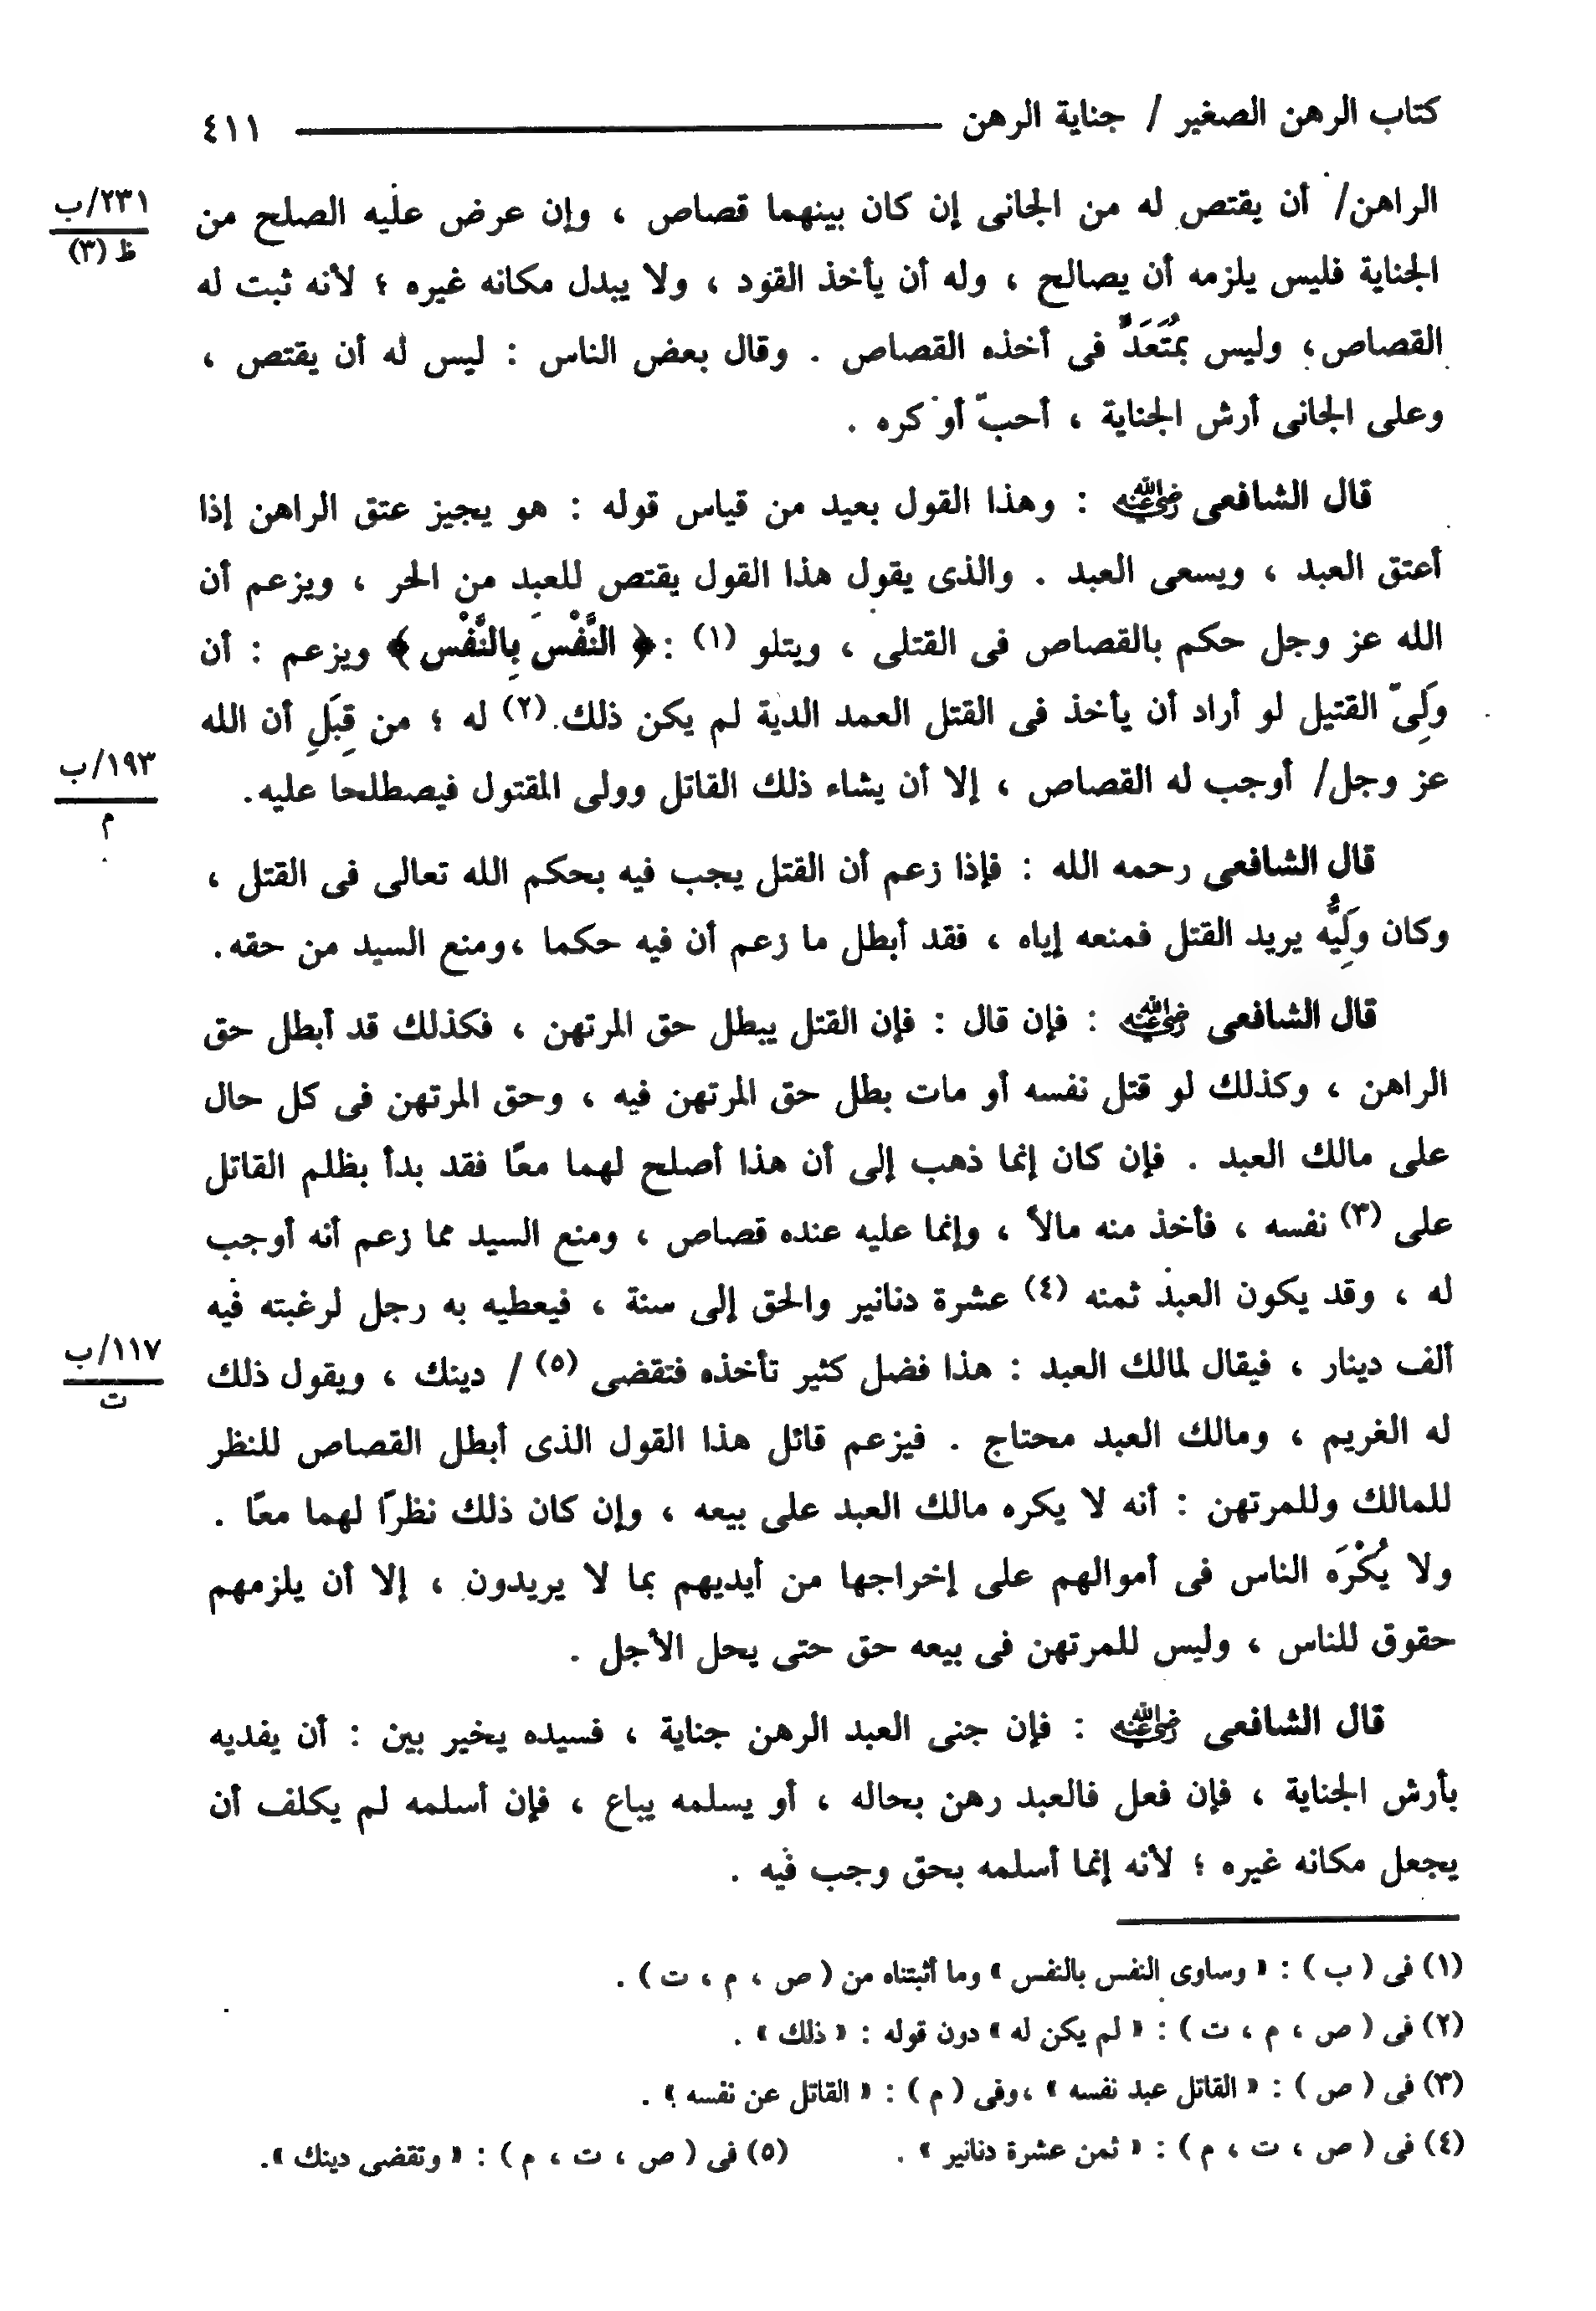 كتاب الرهن الصغير / جناية الرهن ٤١١
الراهن/ أن يقتص له من الجانى إن كان بينهما قصاص ، وإن عرض عليه الصلح من
٢٣١/ب
ظ (٣)
الجناية فليس يلزمه أن يصالح ، وله أن يأخذ القود ، ولا يبدل مكانه غيره ؛ لأنه ثبت له
القصاص؛ وليس بمُتَعَدٍّ فى أخذه القصاص . وقال بعض الناس : ليس له أن يقتص ،
وعلى الجانى أرش الجناية ، أحبّ أو كره .
قال الشافعى رضي الله عنه : وهذا القول بعيد من قياس قوله : هو يجيز عتق الراهن إذا
أعتق العبد ، ويسعى العبد . والذى يقول هذا القول يقتص للعبد من الحر ، ويزعم أن
الله عز وجل حكم بالقصاص فى القتلى ، ويتلو (١) : ﴿ النَّفْسَ بِالنَّفْسِ ﴾ ويزعم : أن
وَلِىّ القتيل لو أراد أن يأخذ فى القتل العمد الدية لم يكن ذلك (٢) له ؛ من قِبَلِ أن الله
عز وجل/ أوجب له القصاص ، إلا أن يشاء ذلك القاتل وولى المقتول فيصطلحا عليه.
١٩٣/ب
م
قال الشافعى رحمه الله : فإذا زعم أن القتل يجب فيه بحكم الله تعالى فى القتل ،
وكان وَلِيُّه يريد القتل فمنعه إياه ، فقد أبطل ما زعم أن فيه حكما ،ومنع السيد من حقه.
قال الشافعى رضي الله عنه : فإن قال : فإن القتل يبطل حق المرتهن ، فكذلك قد أبطل حق
الراهن ، وكذلك لو قتل نفسه أو مات بطل حق المرتهن فيه ، وحق المرتهن فى كل حال
على مالك العبد . فإن كان إنما ذهب إلى أن هذا أصلح لهما معًا فقد بدأ بظلم القاتل
على (٣) نفسه ، فأخذ منه مالاً ، وإنما عليه عنده قصاص ، ومنع السيد مما زعم أنه أوجب
له ، وقد يكون العبد ثمنه (٤) عشرة دنانير والحق إلى سنة ، فيعطيه به رجل لرغبته فيه
ألف دينار ، فيقال لمالك العبد : هذا فضل كثير تأخذه فتقضى (٥) / دينك ، ويقول ذلك
١١٧/ب
ت
له الغريم ، ومالك العبد محتاج . فيزعم قائل هذا القول الذى أبطل القصاص للنظر
للمالك وللمرتهن : أنه لا يكره مالك العبد على بيعه ، وإن كان ذلك نظرًا لهما معًا .
ولا يُكْرَه الناس فى أموالهم على إخراجها من أيديهم بما لا يريدون ، إلا أن يلزمهم
حقوق للناس ، وليس للمرتهن فى بيعه حق حتى يحل الأجل .
قال الشافعى رضي الله عنه : فإن جنى العبد الرهن جناية ، فسيده يخير بين : أن يفديه
بأرش الجناية ، فإن فعل فالعبد رهن بحاله ، أو يسلمه يباع ، فإن أسلمه لم يكلف أن
يجعل مكانه غيره ؛ لأنه إنما أسلمه بحق وجب فيه .
(١) فى ( ب ) : « وساوى النفس بالنفس » وما أثبتناه من ( ص ، م ، ت ) .
(٢) فى ( ص ، م ، ت ) : « لم يكن له » دون قوله : « ذلك » .
(٣) فى ( ص ) : « القاتل عبد نفسه » ،وفى ( م ) : « القاتل عن نفسه » .
(٤) فى ( ص ، ت ، م ) : « ثمن عشرة دنانير » . (٥) فى ( ص ، ت ، م ) : « وتقضى دينك ».